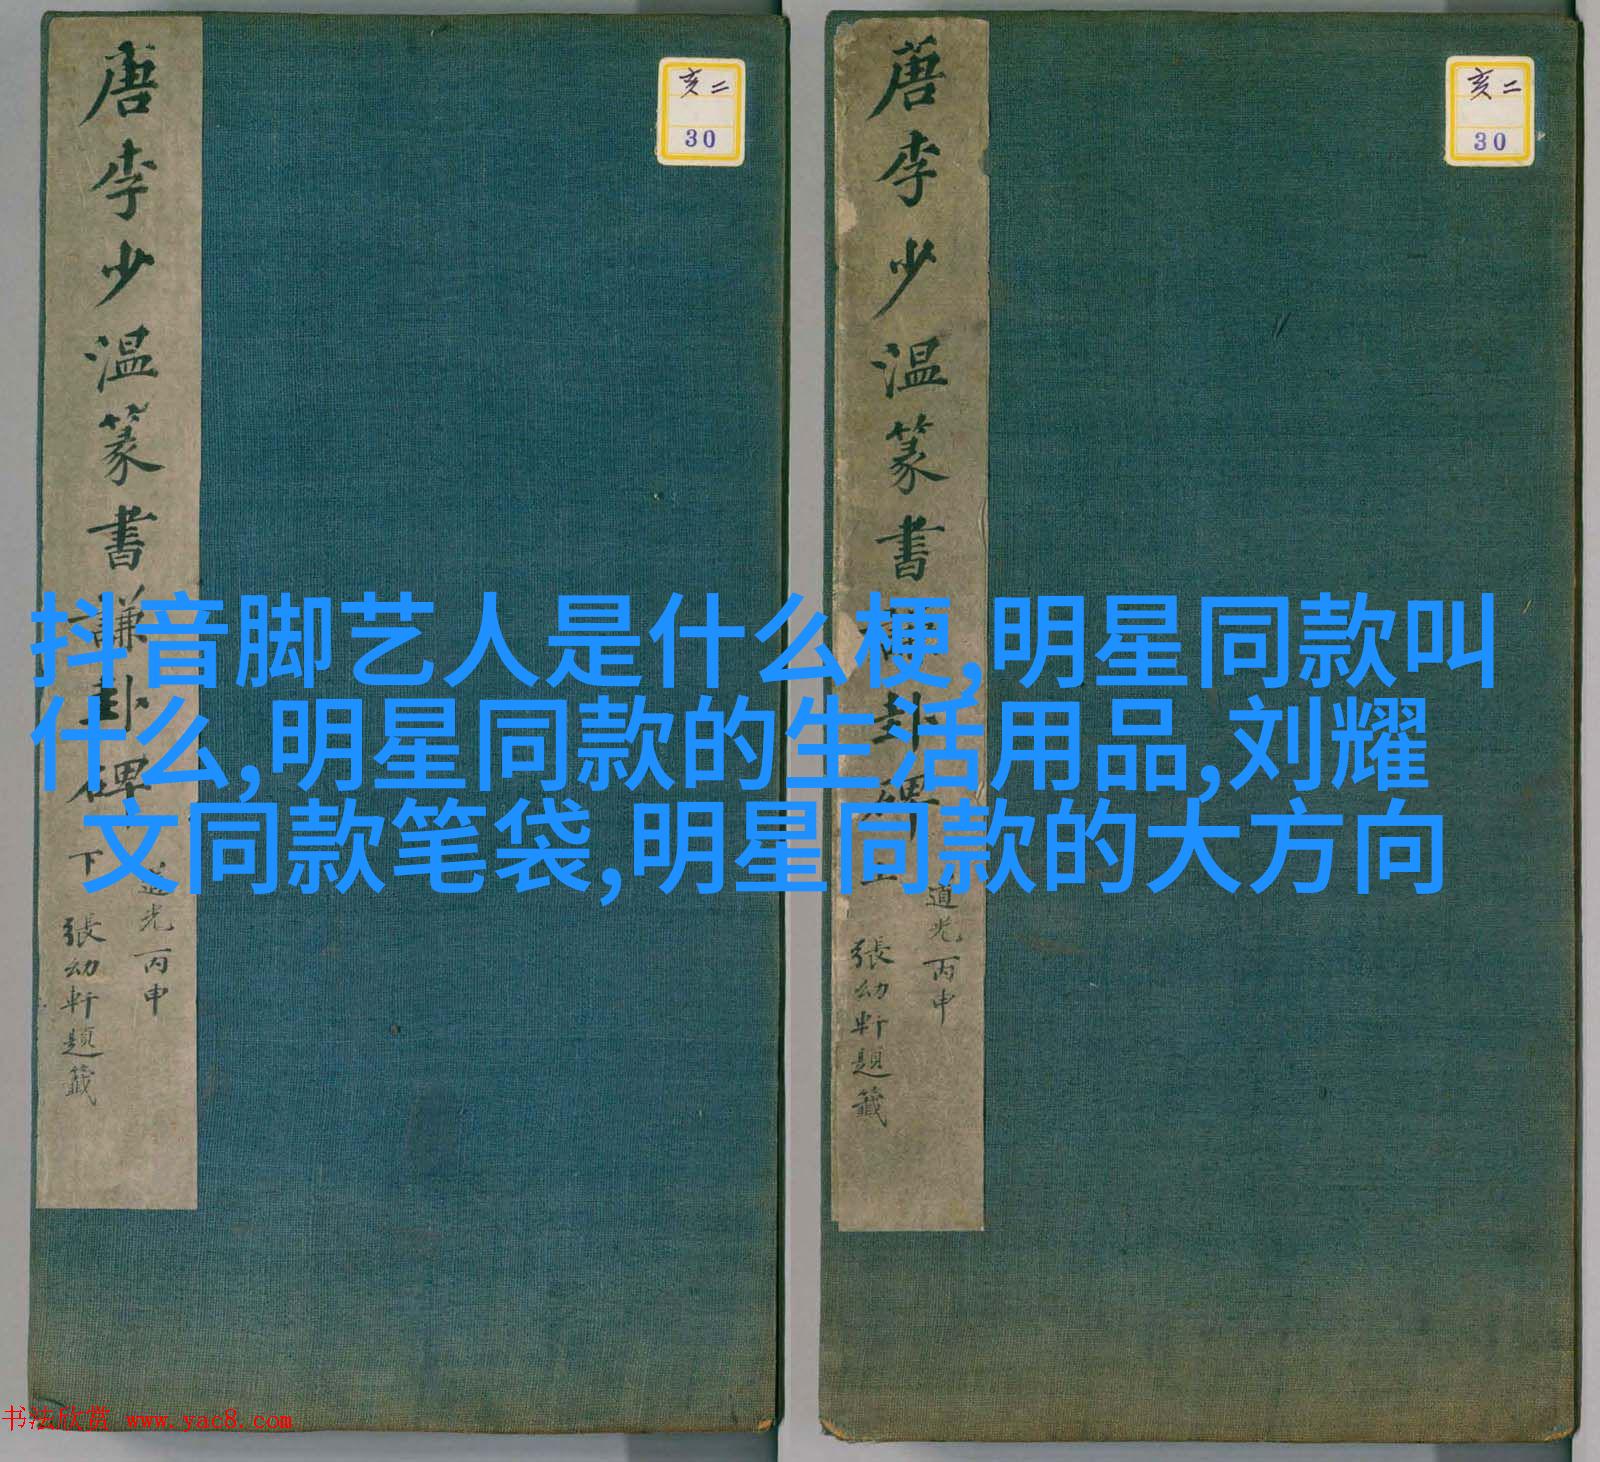 唐李少温篆書謙卦碑下
道光丙申
張幼軒題籤
亥二
30
唐李少温篆書
卦碑上
道光丙申
張幼軒題籤
亥二
30
抖音脚艺人是什么梗,明星同款叫
什么,明星同款的生活用品,刘耀
文同款笔袋,明星同款的大方向
书法欣赏 www.yac8.com